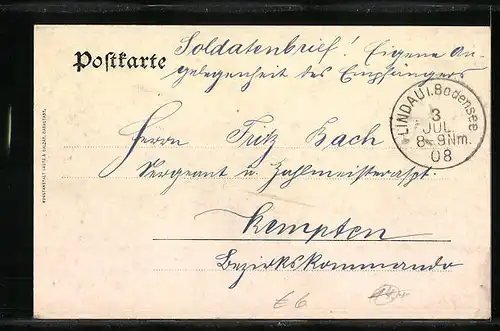 Postkarte
Soldatenbrief! Eigene An-
gelegenheit des Empfängers
LINDAU i. Bodensee
3
JUL
8-9 Nm.
08
Herrn Fritz Bach
Sergeant u. Zahlmeisteraspt.
Kempten
Bezirkskommando
€6